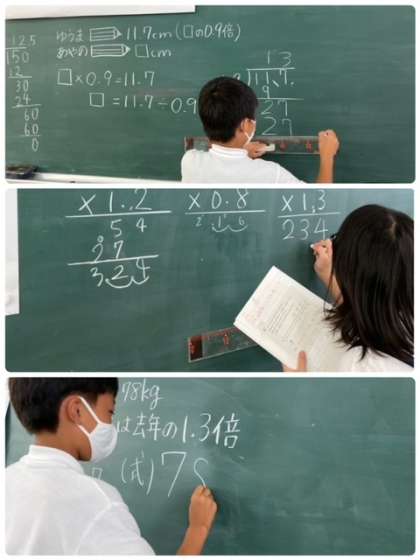 ゆうま 11.7cm (□の0.9倍)
あやの □cm
□×0.9=11.7
□=11.7÷0.9
1 3
11.7
9
27
27
1.25
150
12
30
24
60
60
0
×1.2
54
27
3.24
×0.8
2.16
×1.3
234
78kg
は去年の1.3倍
(式) 78